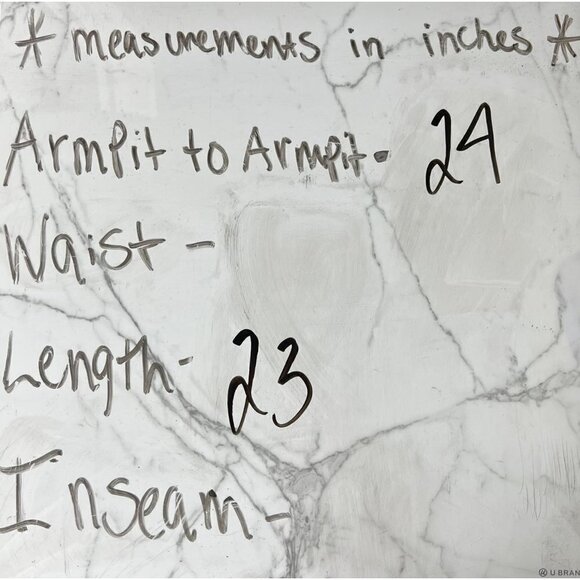 * measurements in inches *
ArmPit to Armpit - 24
Waist -
Length - 23
Inseam -
U BRAN